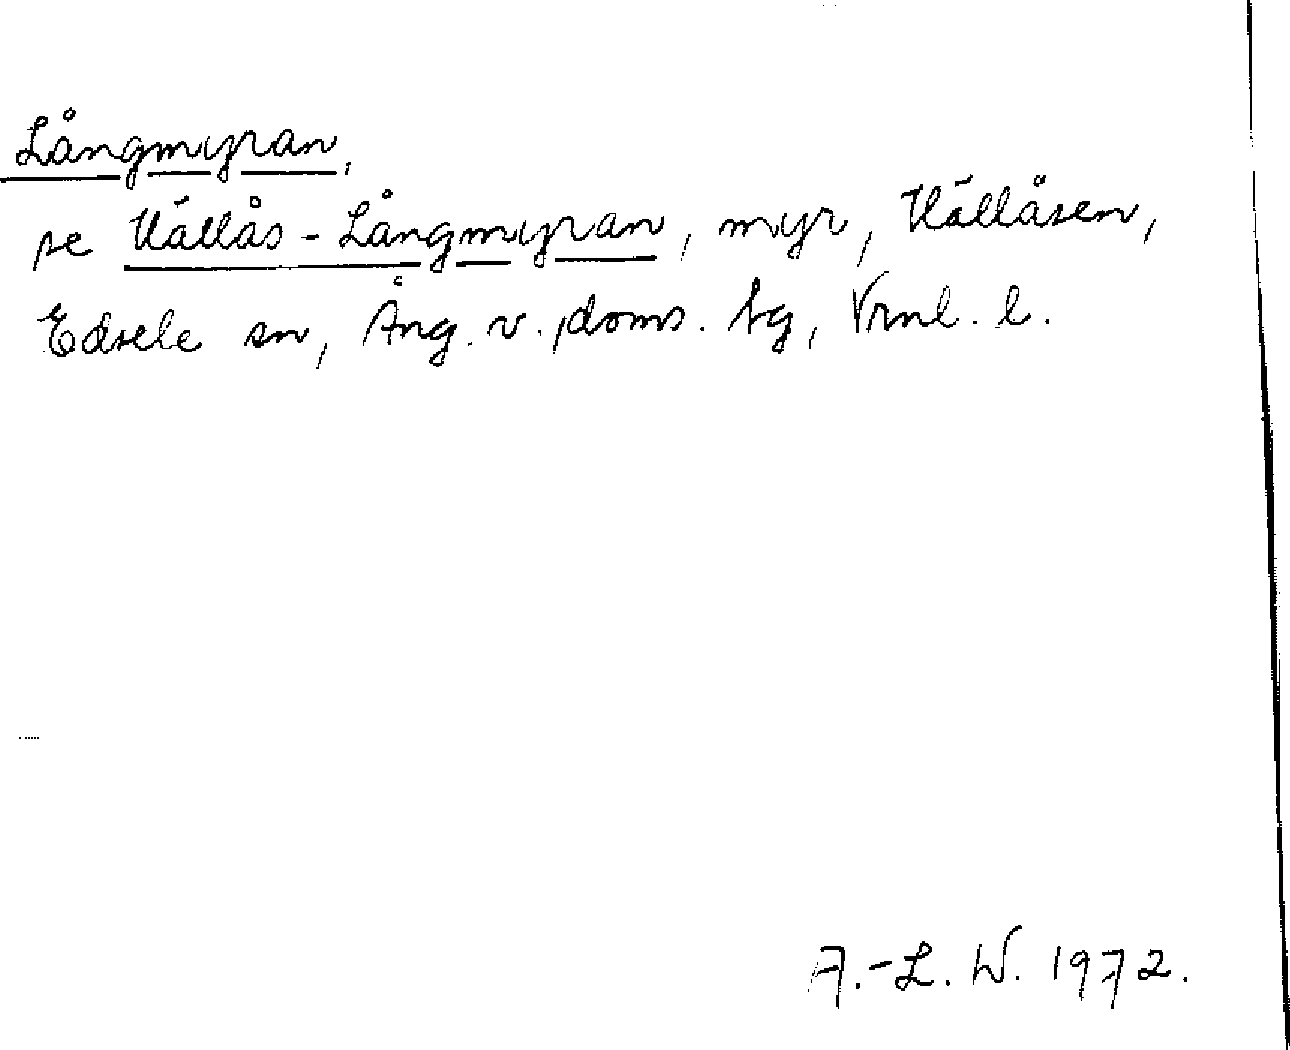 Långmyran,
se Källås-Långmyran, myr, Källåsen,
Edsele sn, Ång. v. doms. tg, Vrnl. l.
A.-L. W. 1972.